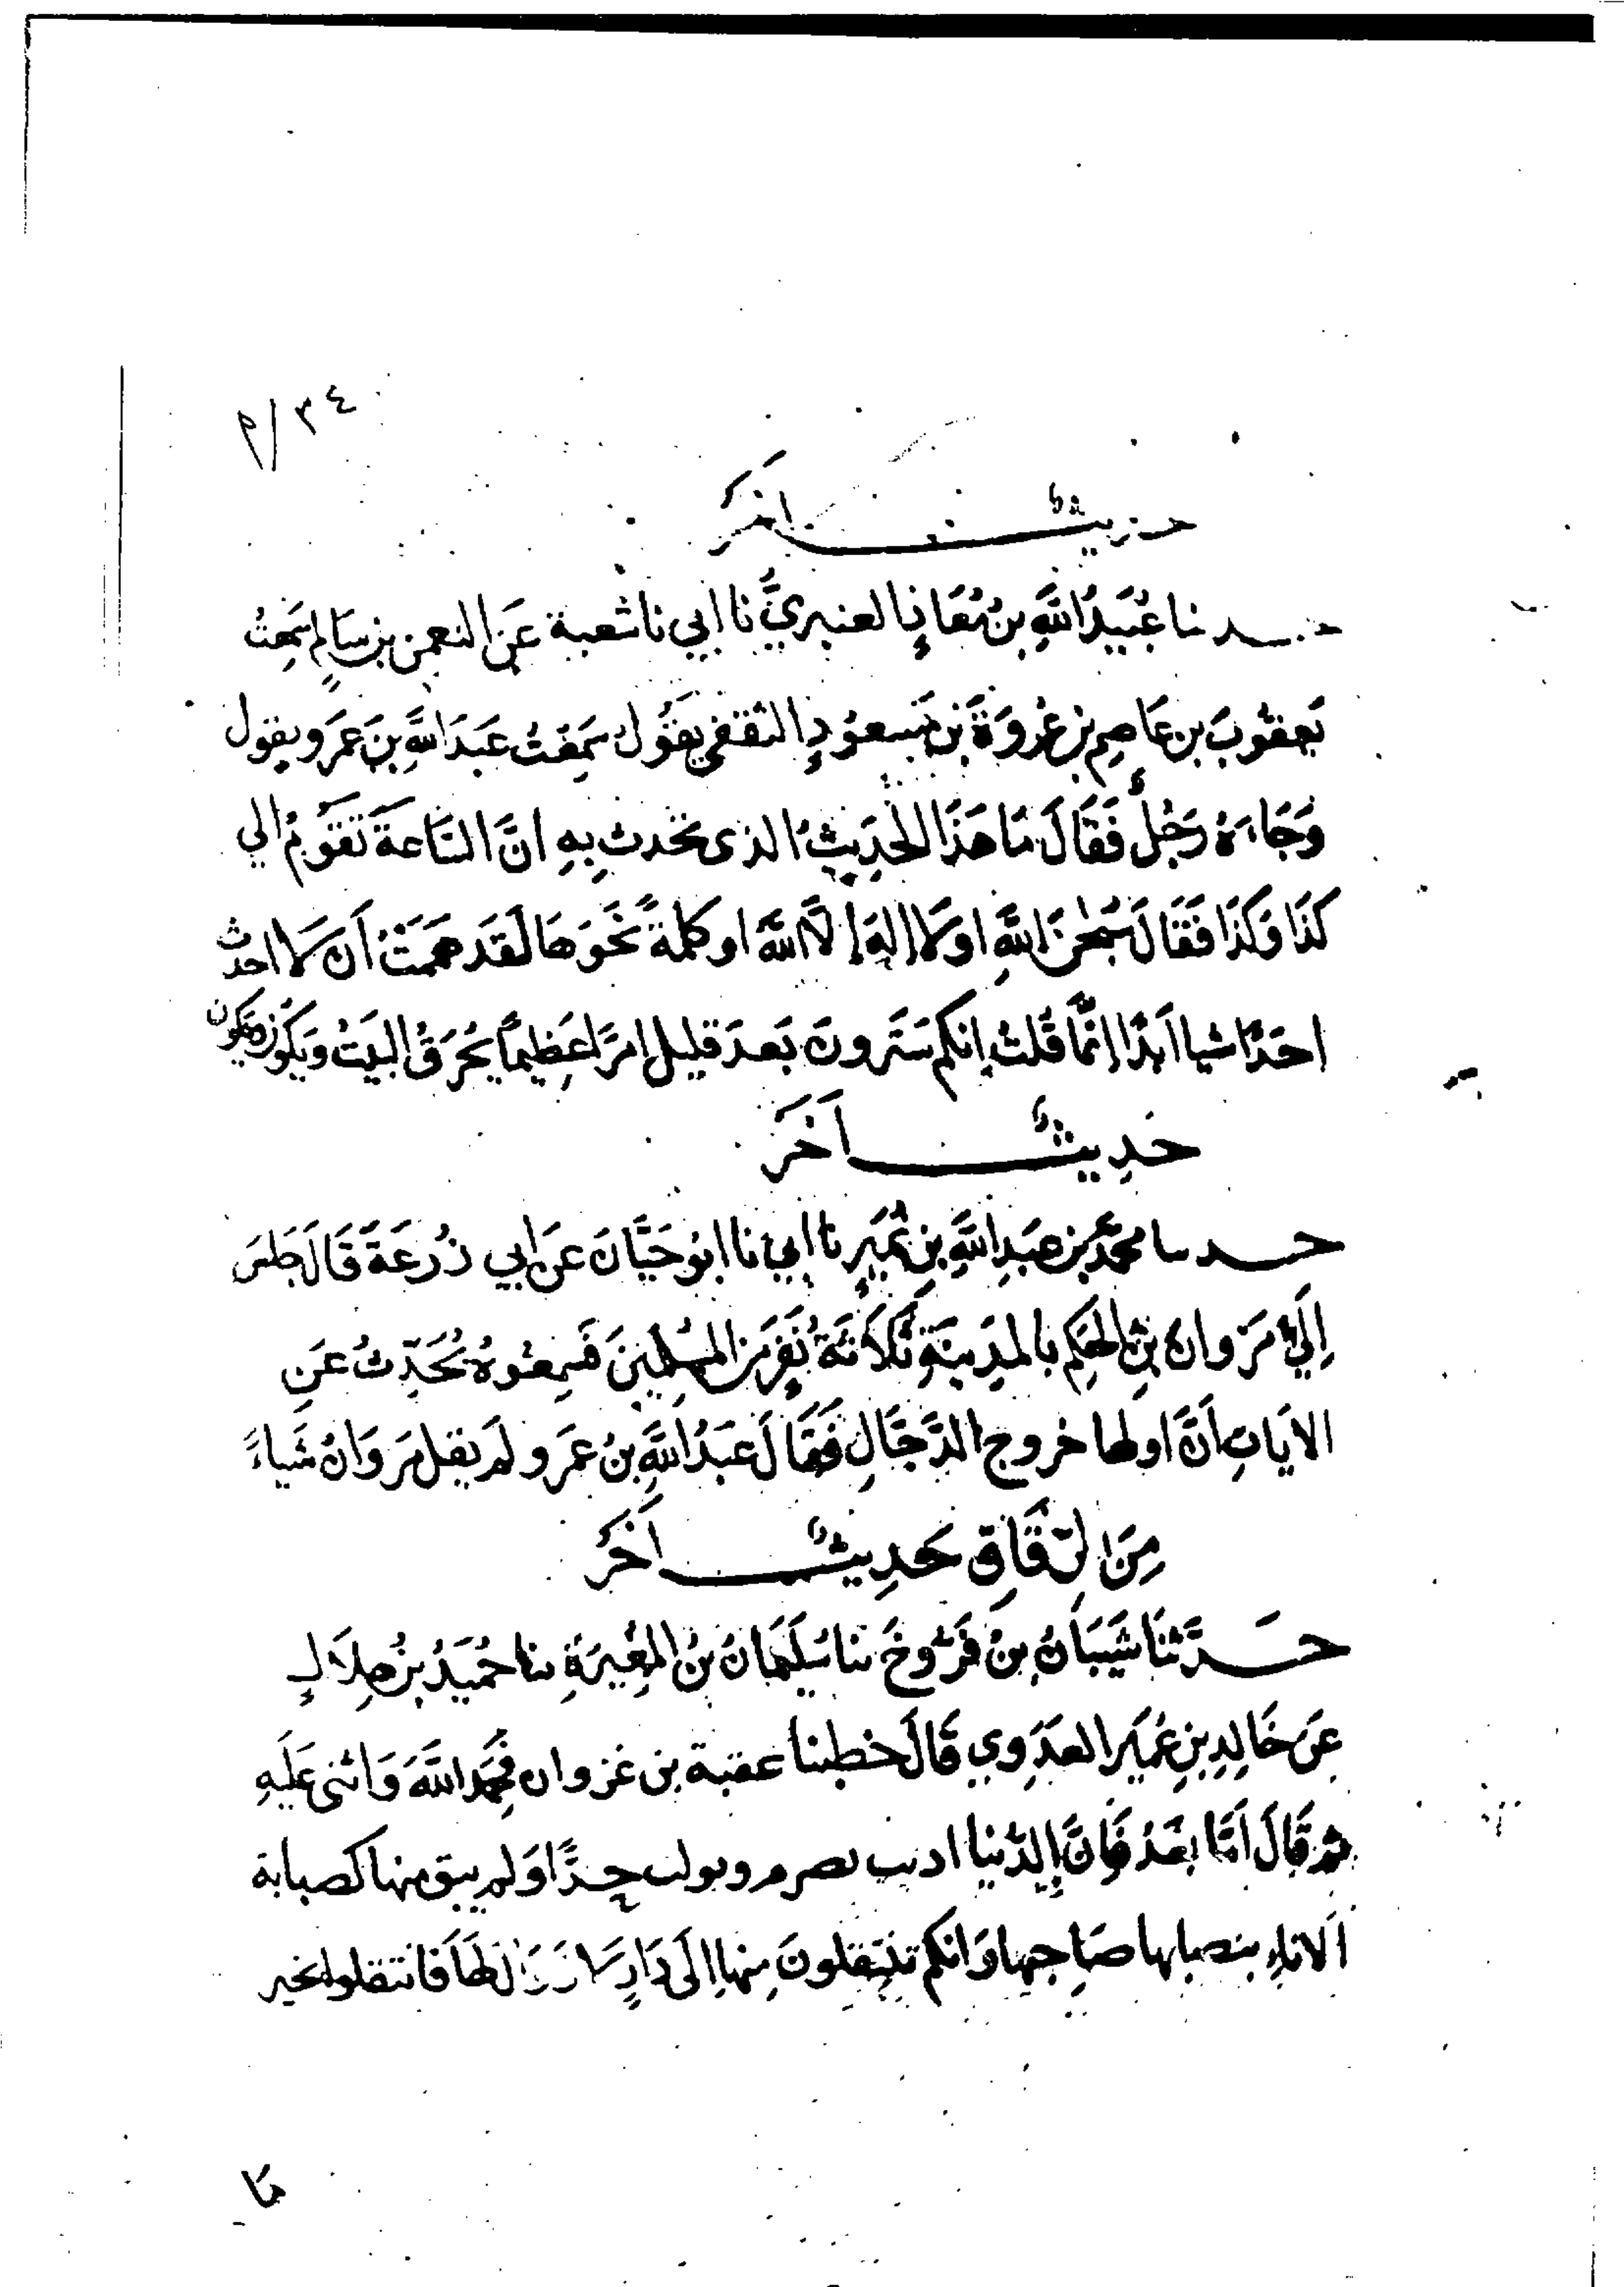 ٣٤/م
حديث اخر
حدثنا عُبَيدُ اللَّهِ بنُ مُعَاذٍ العنبريُّ نا ابي نا شعبة عَنِ النعمن بن سَالِمٍ سَمِعتُ
يَعقوُبَ بن عَاصِمِ بن عُروَةَ بنِ مَسعوُدٍ الثقفي يَقوُلُ سَمِعتُ عَبدَ اللَّهِ بنَ عَمرَو يقول
وَجَاءَهُ رَجُلٌ فَقَالَ مَا هَذَا الحَدِيثُ الذى تحدث بِهِ انَّ السَّاعَةَ تَقوُمُ الي
كَذَا وَكَذَا فَقَالَ سُبحنَ اللَّهِ اوَ لاَ اله إلاَّ اللَّه او كلمةً نَحوَهَا لَقَد هَمَمتُ أَن لاَ احدث
احَدًا شيا ابَدًا انَّمَا قُلتُ إنكم سَتَرونَ بَعدَ قليل امرًا عَظِيمًا يُحَرَقُ البَيتُ وَيَكوُن وَيَكون
حَدِيثٌ اخَرَ
حدثنا محمَّدُ بن عَبدِ اللَّهِ بنِ نُمَيرٍ نا ابي نا ابوُ حَيَّانَ عَن ابي زُرعَةَ قَالَ جَلَسَ
اِلَى مَروَانَ بنِ الحَكَمِ بالمدِينَةِ ثَلاَثَةُ نَفَرٍ مِنَ المُسلِمِينَ فَسَمِعُوهُ يُحَدِّثُ عَنِ
الايَاتِ أنَّ اولها خروج الدَّجَّالِ فَقَالَ عَبدُ اللَّهِ بنُ عَمرَو لَم يقل مَروَانُ شَياءً
مِنَ الرِّقَاقِ حَدِيثٌ اخَرُ
حَدَّثنَا شَيبَانُ بنُ فَرُّوخَ ثنا سُلَيمَانُ بنُ المُغِيرَةِ ثنا حُمَيدُ بنُ هِلاَلٍ
عَن خَالِدِ بنِ عُمَيرٍ العَدَوِي قَالَ خطبنا عقبة بن غزوان فَحَمِدَ اللَّهَ وَاثنى عَلَيهِ
ثم قَالَ امَّا بعَدُ فَإنَّ الدُّنيا اذنت بصرم وولت حذَّا وَلم يبق منها كصبابة
الاناءِ يتصابها صَاحِبها وَانكم تنتَقِلونَ مِنها اِلَى دَارٍ لاَ زَوَالَ لَهَا فَانتقلوا بخير
مَا